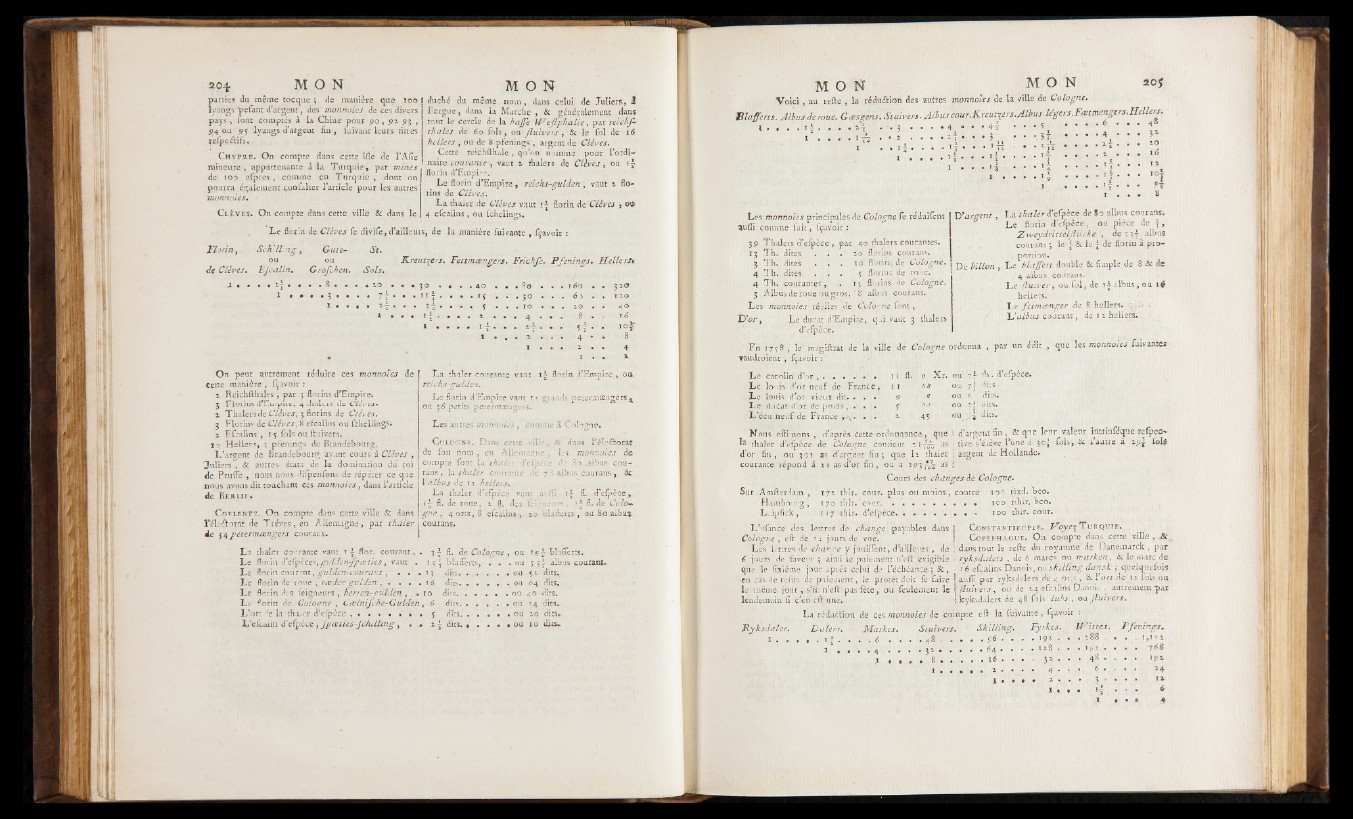 204 MON MON
parties du même tocque ; de manière que 100
lyangs pesant d'argent, des monnoies de ces divers
pays, sont comptés à la Chine pour 90, 92 93,
94 ou 95 lyangs d'argent fin, suivant leurs titres
respectifs.
CHYPRE. On compte dans cette isle de l'Asie
mineure, appartenante à la Turquie, par mines
de 100 aspres, comme en Turquie, dont on
pourra également consulter l'article pour les autres
monnoies.
CLÈVES. On compte dans cette ville & dans le
duché du même nom, dans celui de Juliers, &
Bergue, dans la Marche, & généralement dans
tout le cercle de la basse Westphalie, par reichs-
thales de 60 sols, ou stuivers, & le sol de 16
hellers, ou de 8 pfenings, argent de Clèves.
Cette reichsthale, qu'on nomme pour l'ordi-
naire courante, vaut 2 thalers de Clèves, ou 1½
florin d'Empire.
Le florin d'Empire, reichs-gulden, vaut 2 flo-
rins de Clèves.
La thaler de Clèves vaut 1½ florin de Clèves, ou
4 escalins, ou schelings.
Le florin de Clèves se divise, d'ailleurs, de la manière suivante, sçavoir :
Florin, Schelling, Gute- St.
ou ou Kreutzers. Fettmængers. Frichse. Pfenings. Hellers.
de Clèves. Escalin. Groschen. Sols.
1 . . . . 2½ . . . . 8 . . . . 20 . . . . 30 . . . . 40 . . . 80 . . . 160 . . 320
1 . . . . 3 . . . . 7½ . . . 11¼ . . . . 15 . . . 30 . . . 60 . . . 120
1 . . . . 2½ . . . 3¾ . . . . 5 . . . 10 . . . 20 . . . 40
1 . . . 1½ . . . . 2 . . . . 4 . . . . 8 . . 16
1 . . . . 1⅓ . . . 2⅔ . . . 5⅓ . . 10⅔
1 . . . 2 . . . 4 . . 8
1 . . . 2 . . 4
1 . . 2
On peut autrement réduire ces monnoies de
cette manière, sçavoir :
2 Reichsthales, par 3 florins d'Empire.
3 Florins d'Empire, 4 thalers de Clèves.
2 Thalers de Clèves, 3 florins de Clèves.
3 Florins de Clèves, 8 escalins ou schelings.
2 Escalins, 15 sols ou stuivers.
10 Hellers, 2 pfenings de Brandebourg.
L'argent de Brandebourg ayant cours à Clèves,
Juliers, & autres états de la domination du roi
de Prusse, nous nous dispensons de répéter ce que
nous avons dit touchant ces monnoies, dans l'article
de BERLIN.
COBLENTZ. On compte dans cette ville & dans
l'électorat de Trèves, en Allemagne, par thaler
de 54 petermængers courans.
La thaler courante vaut 1½ florin d'Empire, ou
reichs-gulden.
Le florin d'Empire vaut 12 grands petermængers,
ou 36 petits petermængers.
Les autres monnoies, comme à Cologne.
COLOGNE. Dans cette ville, & dans l'électorat
de son nom, en Allemagne, les monnoies de
compte sont la thaler d'espèce de 80 albus cou-
rans, la thaler courante de 78 albus courans, &
l'albus de 12 hellers.
La thaler d'espèce vaut aussi 1½ fl. d'espèce,
fl. de roue, 2 fl. des seigneurs, fl. de Colo-
gne, 4 orts, 8 escalins, 20 blafferts, ou 80 albus
courans.
La thaler courante vaut 1½ flor. courant, . 3¼ fl. de Cologne, ou blafferts.
Le florin d'espèces, gulden spæties, vaut . blafferts, . . . ou albus courant.
Le florin courant, gulden-courant, . . . . 13 dits. . . . . . ou 52 dits.
Le florin de roue, ræder gulden, . . . . 16 dits. . . . . . ou 64 dits.
Le florin des seigneurs, herren-gulden, . 10 dits. . . . . . ou 40 dits.
Le florin de Cologne, Cœlnische-Gulden, 6 dits. . . . . . ou 24 dits.
L'ort de la thaler d'espèce . . . . . . . 5 dits. . . . . . ou 20 dits.
L'escalin d'espèce, spæties-schilling, . . 2½ dits. . . . . . ou 10 dits.
MON MON 205
Voici, au reste, la réduction des autres monnoies de la ville de Cologne.
Blafferts. Albus de roue. Gœsgens. Stuivers. Albus cour. Kreutzers. Albus légers. Fætmengers. Hellers.
Les monnoies principales de Cologne se réduisent
aussi comme suit, sçavoir :
39 Thalers d'espèce, par 40 thalers courantes.
13 Th. dites . . . 20 florins courans.
3 Th. dites . . . 10 florins de Cologne.
4 Th. dites . . . 5 florins de roue.
4 Th. courantes, . 13 florins de Cologne.
3 Albus de roue ou gros, 8 albus courans.
Les monnoies réelles de Cologne sont,
D'or, Le ducat d'Empire, qui vaut 3 thalers
d'espèce.
D'argent, La thaler d'espèce de 80 albus courans.
Le florin d'espèce, ou pièce de ⅔,
Zweydrittelstücke, de 53⅓ albus
courans ; le & le de florin à pro-
portion.
De billon, Le blaffert double & simple de 8 & de
4 albus courans.
Le stuiver, ou sol, de 1⅓ albus, ou 16
hellers.
Le fætmænger de 8 hellers.
L'albus courant, de 12 hellers.
En 1758, le magistrat de la ville de Cologne ordonna, par un édit, que les monnoies suivantes
vaudroient, sçavoir :
Le carolin d'or, . . . . . . . 11 fl. 0 Xr. ou 7⅓ th. d'espèce.
Le louis d'or neuf de France, 11 ou 7⅓ dits.
Le louis d'or vieux dit. . . . 9 0 ou 6 dits.
Le ducat d'or de poids, . . . 5 ou dits.
L'écu neuf de France, . . . 2 45 ou dits.
Nous estimons, d'après cette ordonnance, que
la thaler d'espèce de Cologne contient as
d'or fin, ou 301 as d'argent fin ; que la thaler
courante répond à as d'or fin, ou à as
d'argent fin, & que leur valeur intrinsèque respec-
tive s'élève l'une à 30¼ sols, & l'autre à 29¼ sols
argent de Hollande.
Cours des changes de Cologne.
Sur Amsterdam, 172 thlr. cour. plus ou moins, contre 100 rixd. bco.
Hambourg, 170 thlr. cour. . . . . . . . . . . 100 rthlr. bco.
Leipsick, 117 thlr. d'espèce. . . . . . . . . . 100 thlr. cour.
L'usance des lettres de change payables dans
Cologne, est de 14 jours de vue.
Les lettres de change y jouissent, d'ailleurs, de
6 jours de faveur ; ainsi le paiement n'est exigible
que le sixième jour après celui de l'échéance ; &,
en cas de refus de paiement, le protêt doit se faire
le même jour, s'il n'est pas fête, ou seulement le
lendemain si c'en est une.
CONSTANTINOPLE. Voyez TURQUIE.
COPENHAGUE. On compte dans cette ville, &
dans tout le reste du royaume de Danemarck, par
ryksdalers, de 6 marcs ou marken, & le marc de
16 escalins Danois, ou skilling dansk ; quelquefois
aussi par ryksdalers de 4 orts, & l'ort de 12 sols ou
stuivers, ou de 24 escalins Danois ; autrement par
ryksdalers de 48 sols lubs, ou stuivers.
La réduction de ces monnoies de compte est la suivante, sçavoir :
Ryksdaler. Dalers. Markes. Stuivers. Skilling. Fyrkes. Wittes. Pfenings.
1 . . . . . 1½ . . . . . 6 . . . . . 48 . . . . . 96 . . . . 192 . . . 288 . . . 1,152
1 . . . . . 4 . . . . . 32 . . . . . 64 . . . . 128 . . . 192 . . . . 768
1 . . . . . 8 . . . . . 16 . . . . 32 . . . 48 . . . . 192
1 . . . . . 2 . . . . 4 . . . 6 . . . . 24
1 . . . . 2 . . . 3 . . . . 12
1 . . . 1½ . . . 6
1 . . . 4